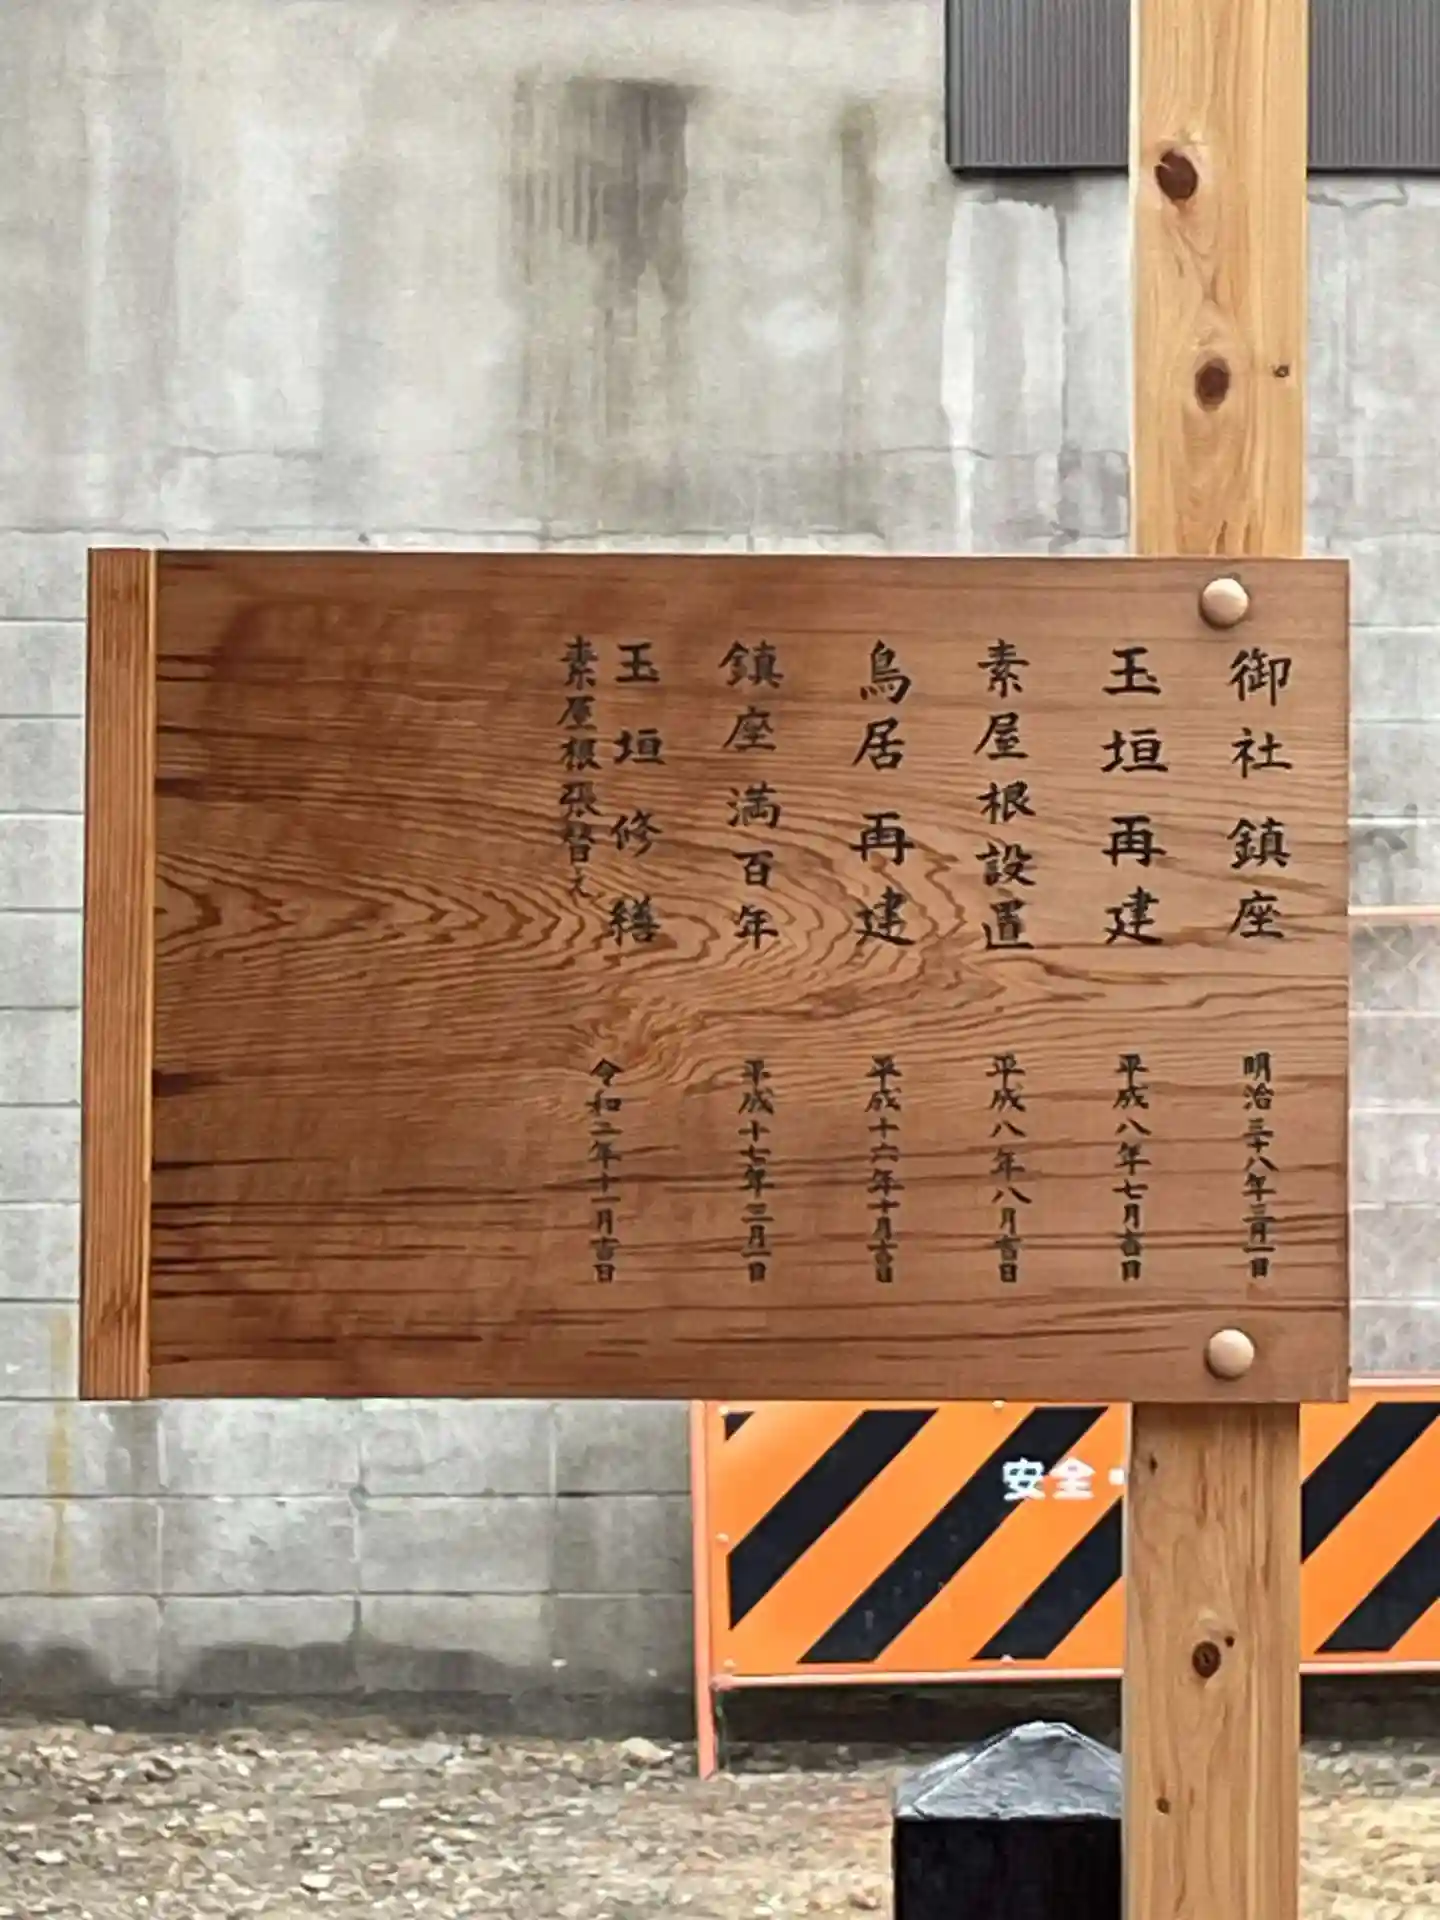 御社鎮座 明治三十八年三月一日
玉垣再建 平成八年七月吉日
素屋根設置 平成八年八月吉日
鳥居再建 平成十六年十月吉日
鎮座満百年 平成十七年三月一日
玉垣修繕
素屋根張替え
令和二年十一月吉日
安全・